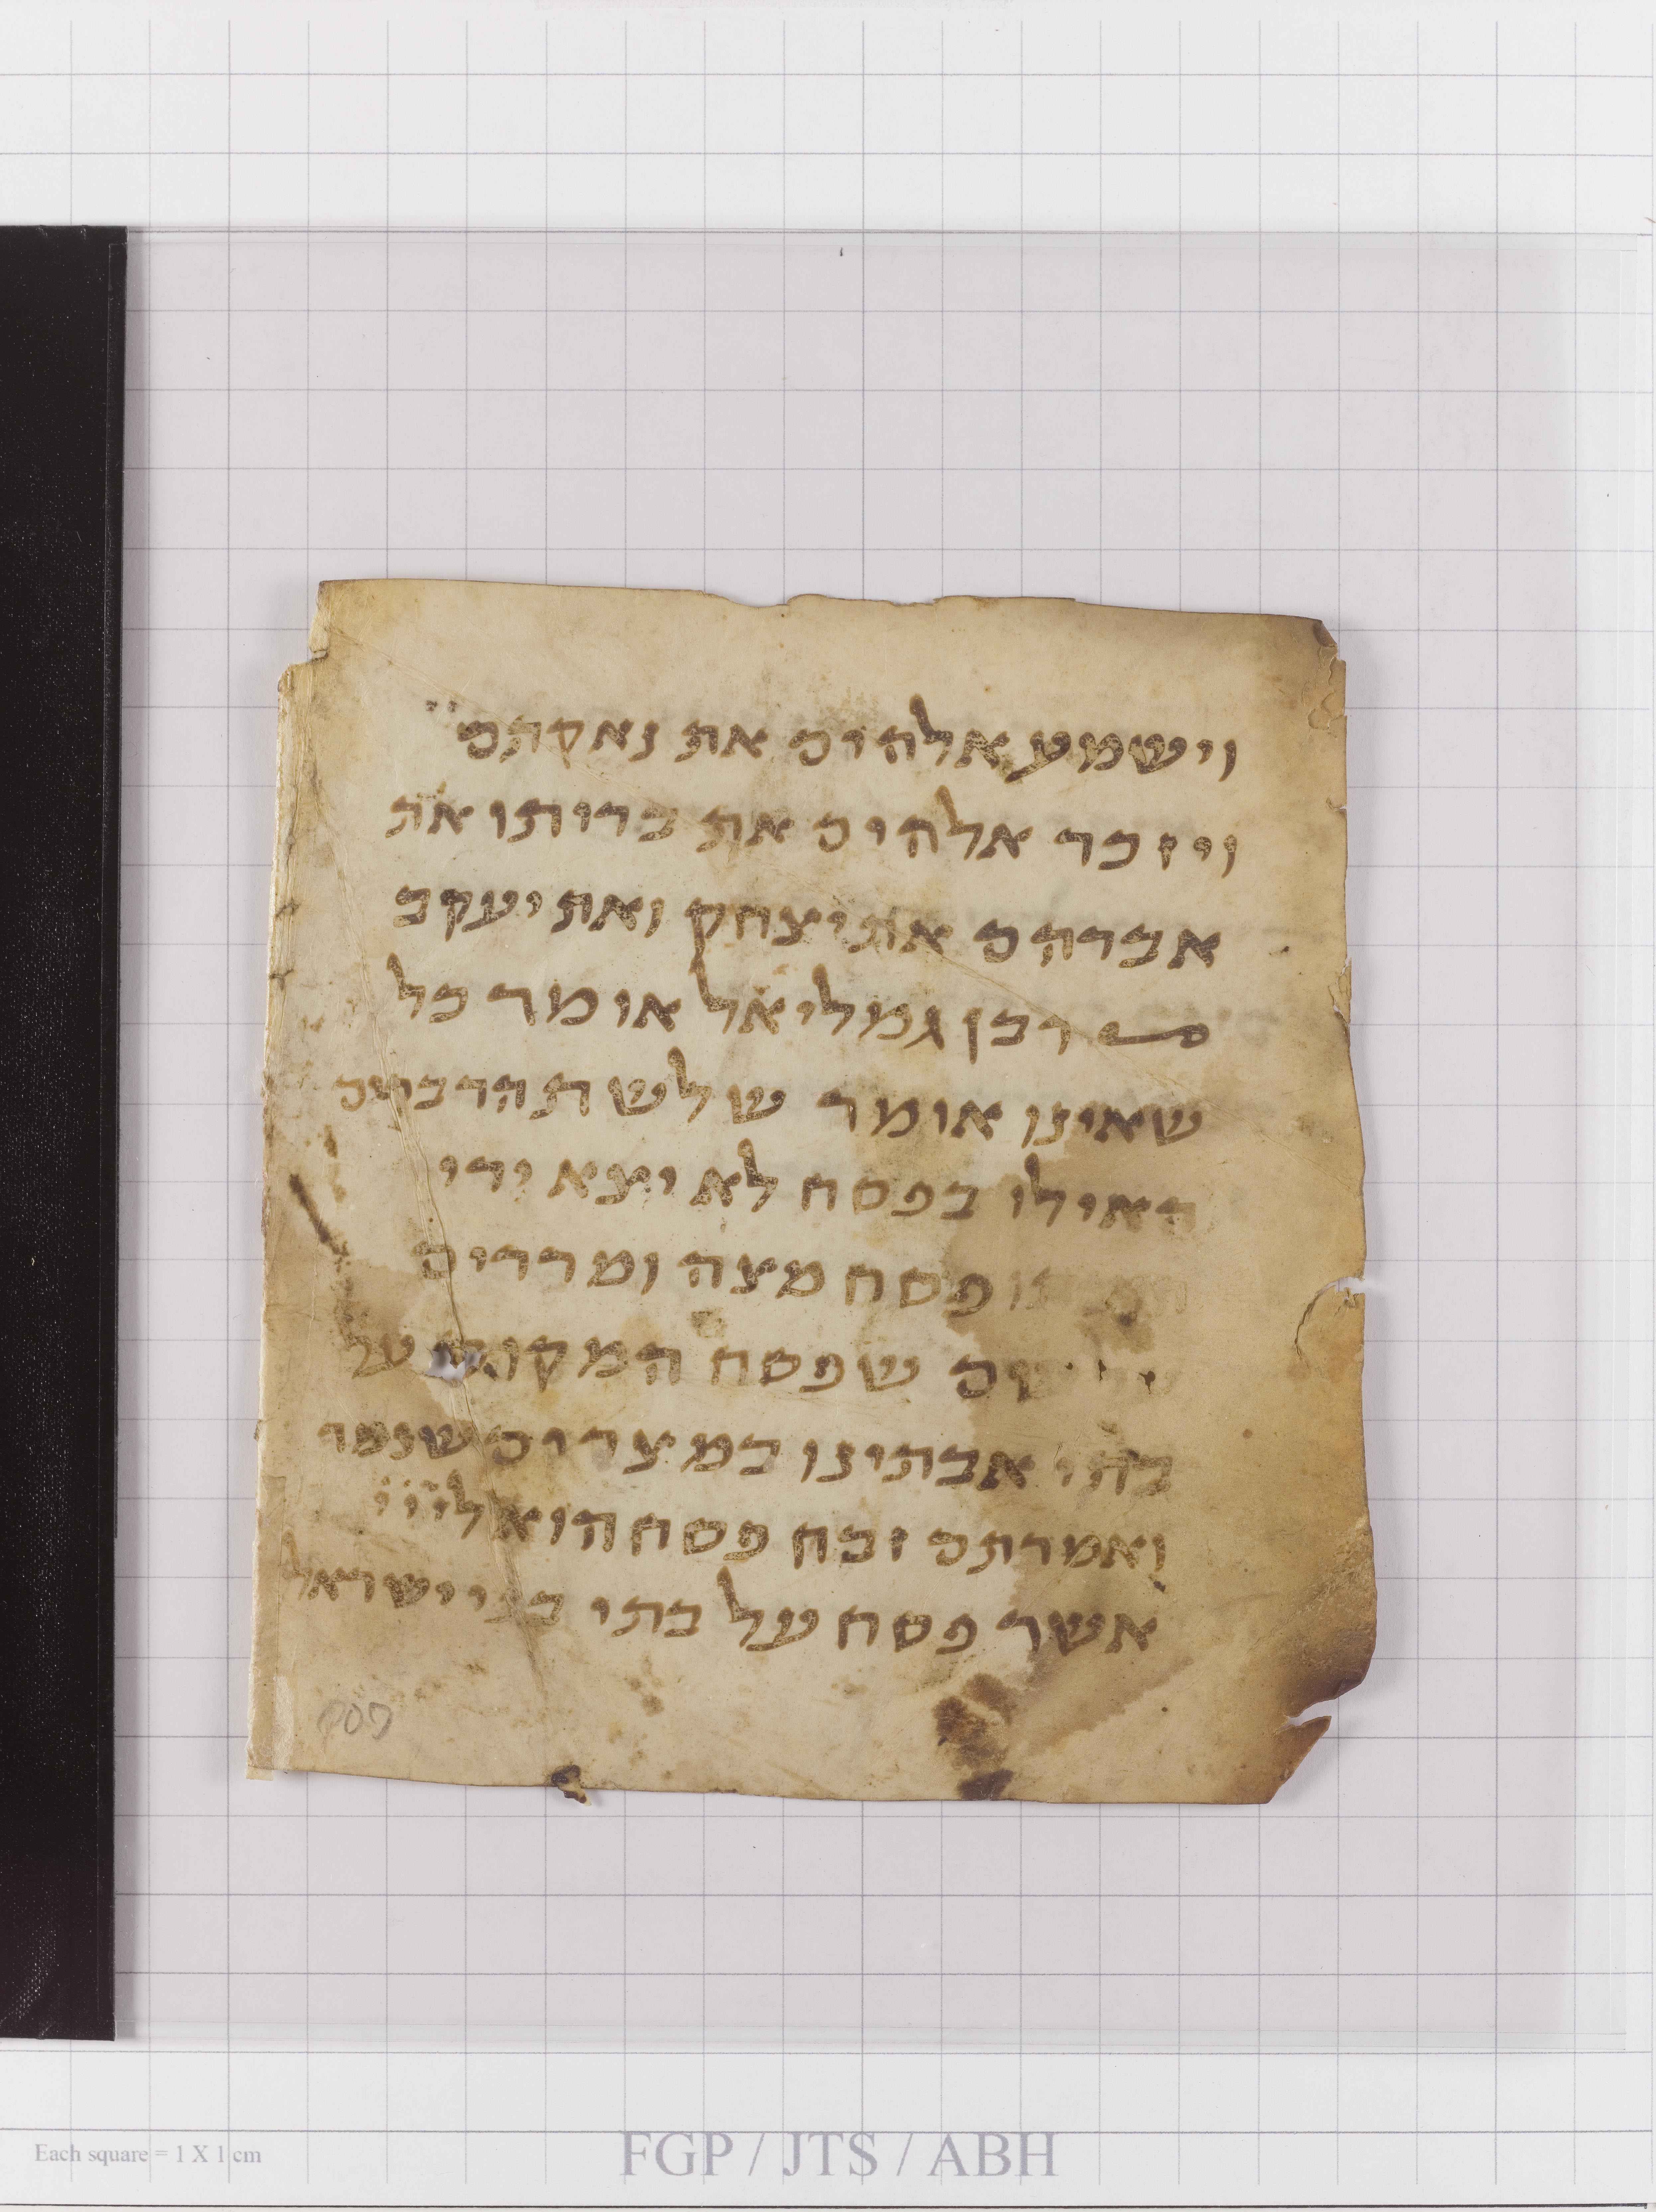 וישמע אלהים את נאקתם
ויזכר אלהים את בריתו את
אברהם את יצחק ואת יעקב
רבן גמליאל אומר כל
שאינו אומר שלשת הדברים
האילו בפסח לא יצא ידי
פסח מצה ומררים
שם שפסח המקום על
בתי אבתינו במצרים שנמר
ואמרתם זבח פסח הוא לייי
אשר פסח על בתי בני ישראל
Each square = 1 X 1 cm
FGP / JTS / ABH